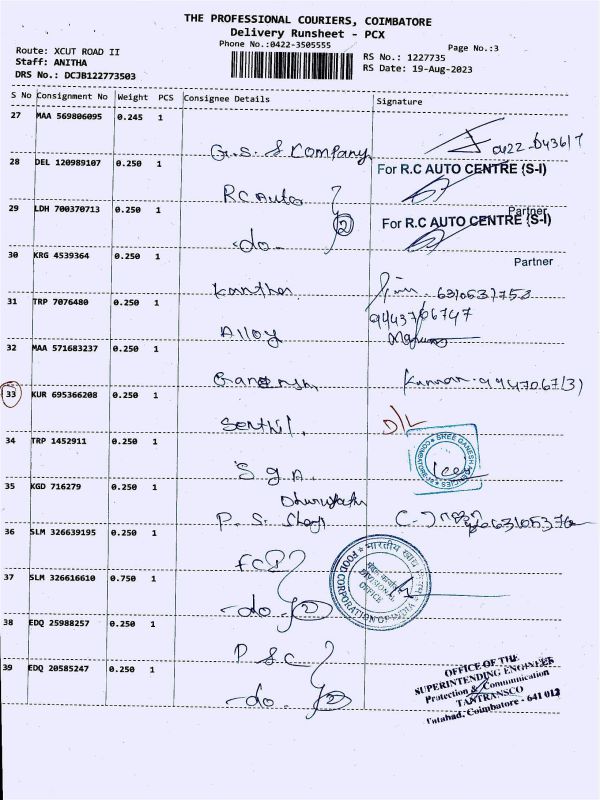 THE PROFESSIONAL COURIERS, COIMBATORE
Delivery Runsheet - PCX
Phone No.:0422-3505555
Page No.:3
Route: XCUT ROAD II
Staff: ANITHA
DRS No.: DCJB122773503
RS No.: 1227735
RS Date: 19-Aug-2023
S No Consignment No Weight PCS Consignee Details Signature
27 MAA 569806095 0.245 1
G.S. & Company
28 DEL 120989107 0.250 1
For R.C AUTO CENTRE (S-I)
RC Auto
Partner
29 LDH 700370713 0.250 1
2
For R.C AUTO CENTRE (S-I)
-do-
Partner
30 KRG 4539364 0.250 1
31 TRP 7076480 0.250 1
Alloy
32 MAA 571683237 0.250 1
Ganesh
33 KUR 695366208 0.250 1
Senthil.
D/L
34 TRP 1452911 0.250 1
SREE GANESH AGENCIES
COIMBATORE
S.G.A.
35 KGD 716279 0.250 1
36 SLM 326639195 0.250 1
FCI
भारतीय खाद्य निगम
FOOD CORPORATION OF INDIA
DIVISIONAL OFFICE
37 SLM 326616610 0.750 1
-do- 2
38 EDQ 25988257 0.250 1
P.S.C
39 EDQ 20585247 0.250 1
-do. 2
OFFICE OF THE
SUPERINTENDING ENGINEER
Protection & Communication
TANTRANSCO
Tatabad, Coimbatore - 641 012